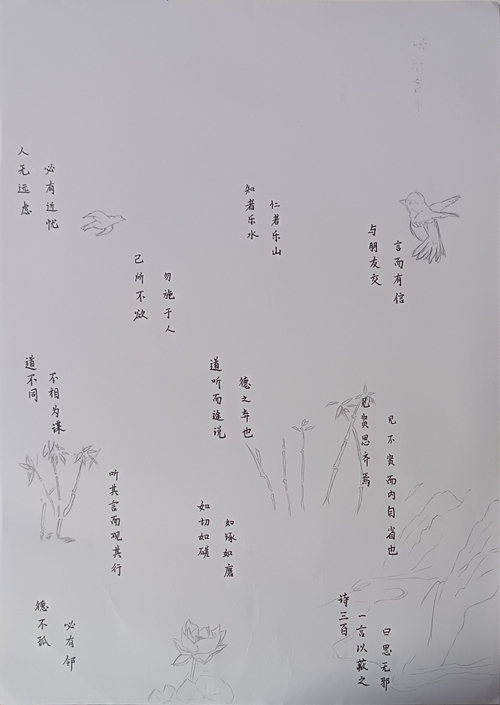 人无远虑
必有近忧
知者乐水
仁者乐山
与朋友交
言而有信
己所不欲
勿施于人
道不同
不相为谋
道听而途说
德之弃也
见贤思齐焉
见不贤而内自省也
听其言而观其行
如切如磋
如琢如磨
德不孤
必有邻
诗三百
一言以蔽之
曰思无邪